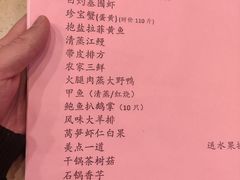 白灼基围虾
珍宝蟹(蛋黄)(时价110斤)
抱盐拉菲黄鱼
清蒸江鳗
带皮排方
农家三鲜
火腿肉蒸大野鸭
甲鱼(清蒸/红烧)
鲍鱼扒鹅掌(10只)
风味大羊排
莴笋虾仁白果
美点一道
干锅茶树菇
石锅香芋
送水果